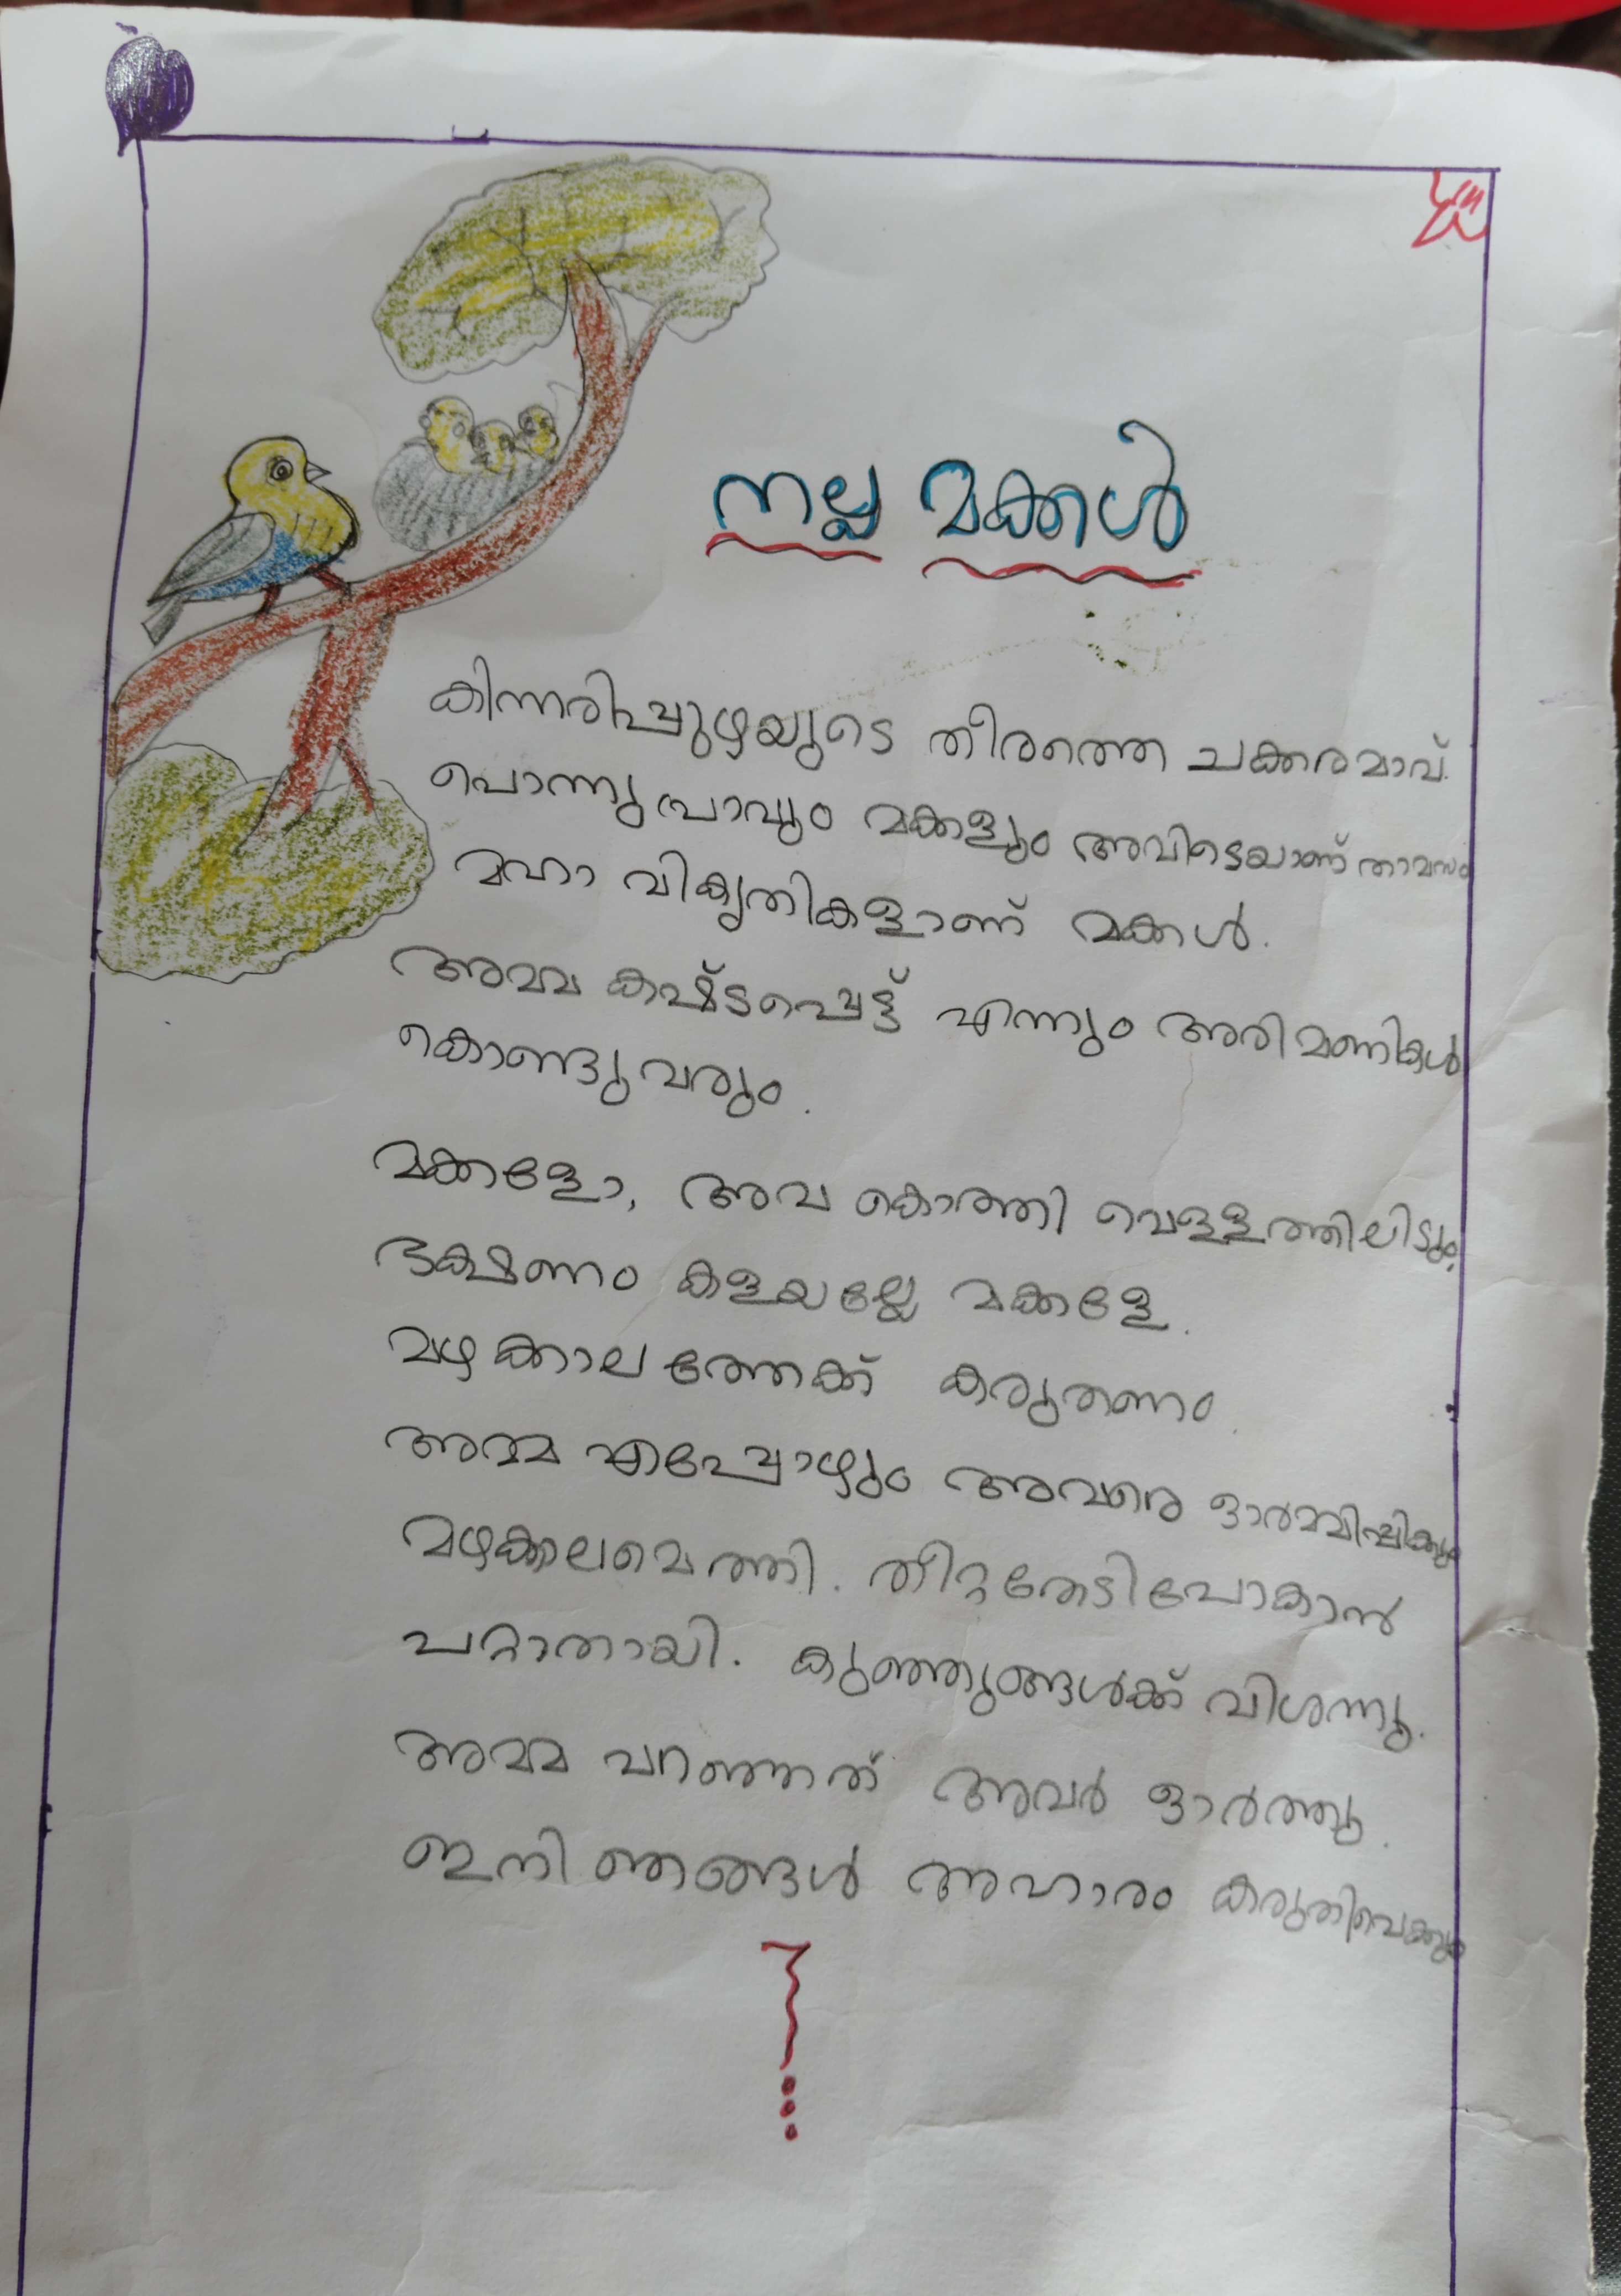 നല്ല മക്കൾ
കിന്നരിപ്പുഴയുടെ തീരത്തെ ചക്കരമാവ്.
പൊന്നു പ്രാവും മക്കളും അവിടെയാണ് താമസം
മഹാ വികൃതികളാണ് മക്കൾ.
അമ്മ കഷ്ടപ്പെട്ട് എന്നും അരിമണികൾ
കൊണ്ടുവരും.
മക്കളോ, അവ കൊത്തി വെള്ളത്തിലിടും.
ഭക്ഷണം കളയല്ലേ മക്കളേ.
മഴക്കാലത്തേക്ക് കരുതണം.
അമ്മ എപ്പോഴും അവരെ ഓർമ്മിപ്പിക്കും
മഴക്കാലമെത്തി. തീറ്റതേടിപോകാൻ
പറ്റാതായി. കുഞ്ഞുങ്ങൾക്ക് വിശന്നു.
അമ്മ പറഞ്ഞത് അവർ ഓർത്തു.
ഇനി ഞങ്ങൾ അഹാരം കരുതിവെക്കും